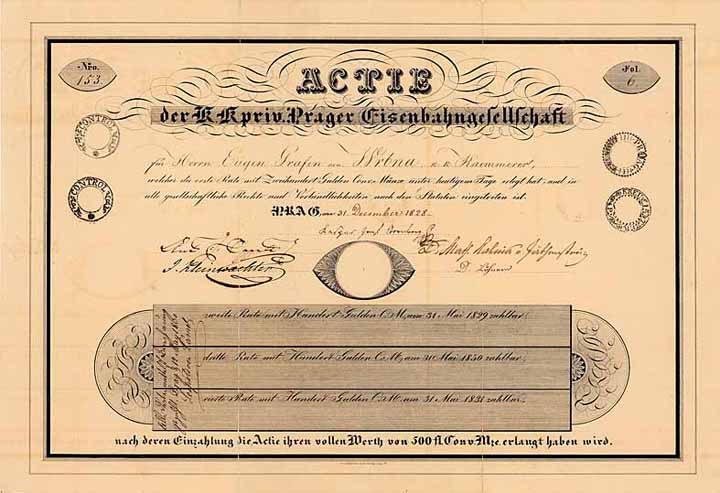 Nro.
153.
Fol.
6.
ACTIE
der K.K. priv. Prager Eisenbahngesellschaft
für Herrn Eugen Grafen von Wrbna k. k. Kaemmerer,
welcher die erste Rate mit Zweihundert Gulden Conv. Münze unter heutigem Tage erlegt hat, und in
alle gesellschaftliche Rechte und Verbindlichkeiten nach den Statuten eingetreten ist.
PRAG, am 31. December 1828.
J. Kleinwächter
CONTROL
CONTROL
zweite Rate mit Hundert Gulden C.M. am 31 Mai 1829 zahlbar,
dritte Rate mit Hundert Gulden C.M. am 31 Mai 1830 zahlbar,
vierte Rate mit Hundert Gulden C.M. am 31 Mai 1831 zahlbar,
nach deren Einzahlung die Actie ihren vollen Werth von 500 fl. Conv. Mze. erlangt haben wird.